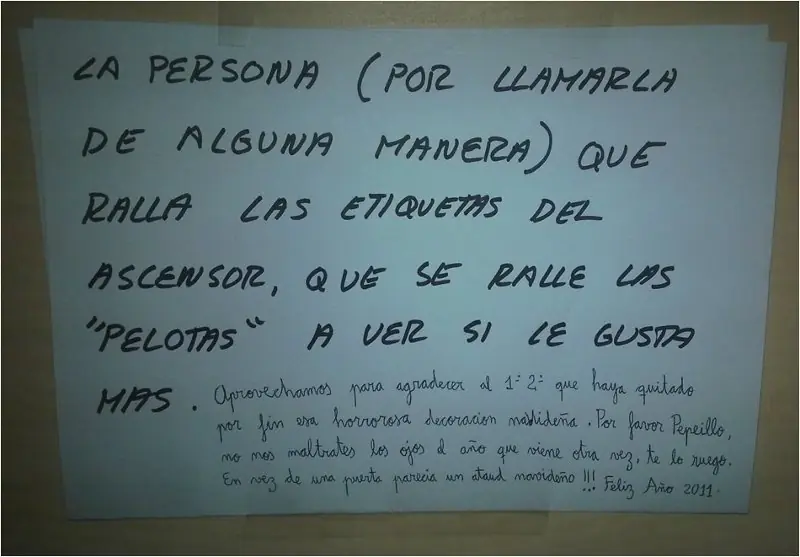 LA PERSONA (POR LLAMARLA
DE ALGUNA MANERA) QUE
RALLA LAS ETIQUETAS DEL
ASCENSOR, QUE SE RALLE LAS
"PELOTAS" A VER SI LE GUSTA
MAS.
Aprovechamos para agradecer al 1º 2º que haya quitado
por fin esa horrorosa decoracion navideña. Por favor Pepeillo,
no nos maltrates los ojos el año que viene otra vez, te lo ruego.
En vez de una puerta parecia un ataud navideño!!! Feliz Año 2011.